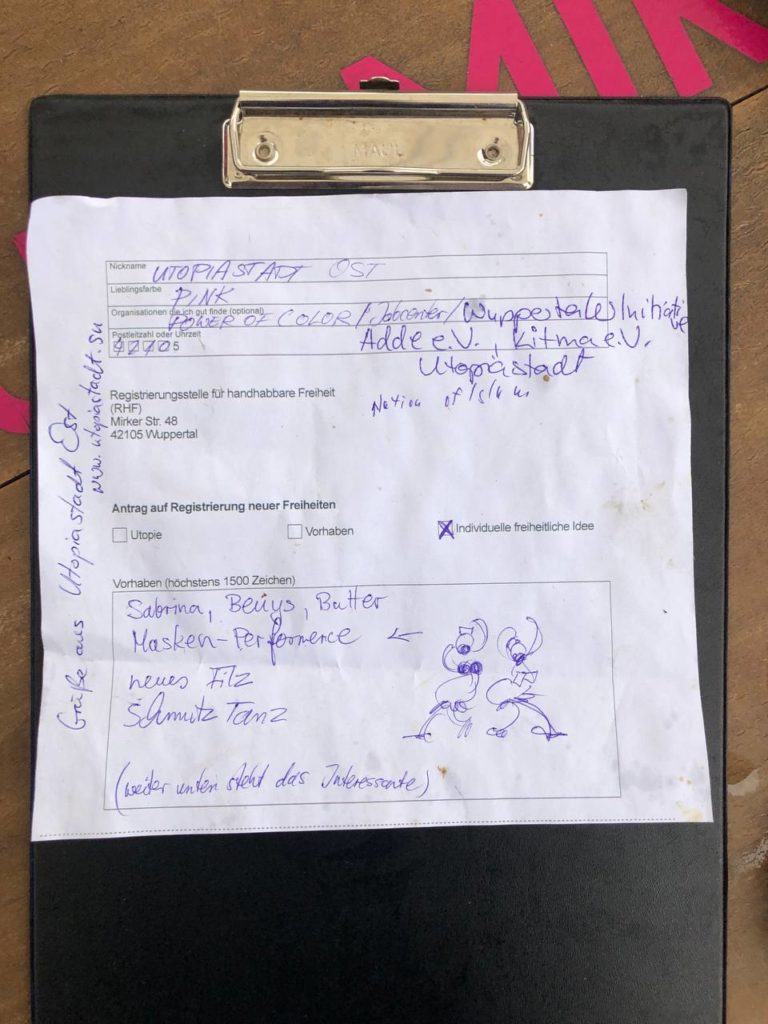 MIR
MAUL
Nickname UTOPIASTADT OST
Lieblingsfarbe PINK
Organisationen die ich gut finde (optional)
POWER OF COLOR / Jobcenter / Wuppertal(e) Initiative
Adde e.V., Kitma e.V.
Utopiastadt
Nation of Islam
Postleitzahl oder Uhrzeit
5
Registrierungsstelle für handhabbare Freiheit
(RHF)
Mirker Str. 48
42105 Wuppertal
Antrag auf Registrierung neuer Freiheiten
Utopie Vorhaben X Individuelle freiheitliche Idee
Vorhaben (höchstens 1500 Zeichen)
Sabrina, Beuys, Butter
Masken-Performence ←
neues Filz
Schmitz Tanz
(weiter unten steht das Interessante)
Grüße aus Utopiastadt Ost
www.utopiastadt.su